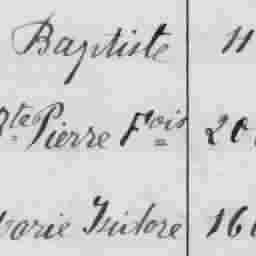 Baptiste 11
Bte Pierre Fois 20
Marie Isidore 16